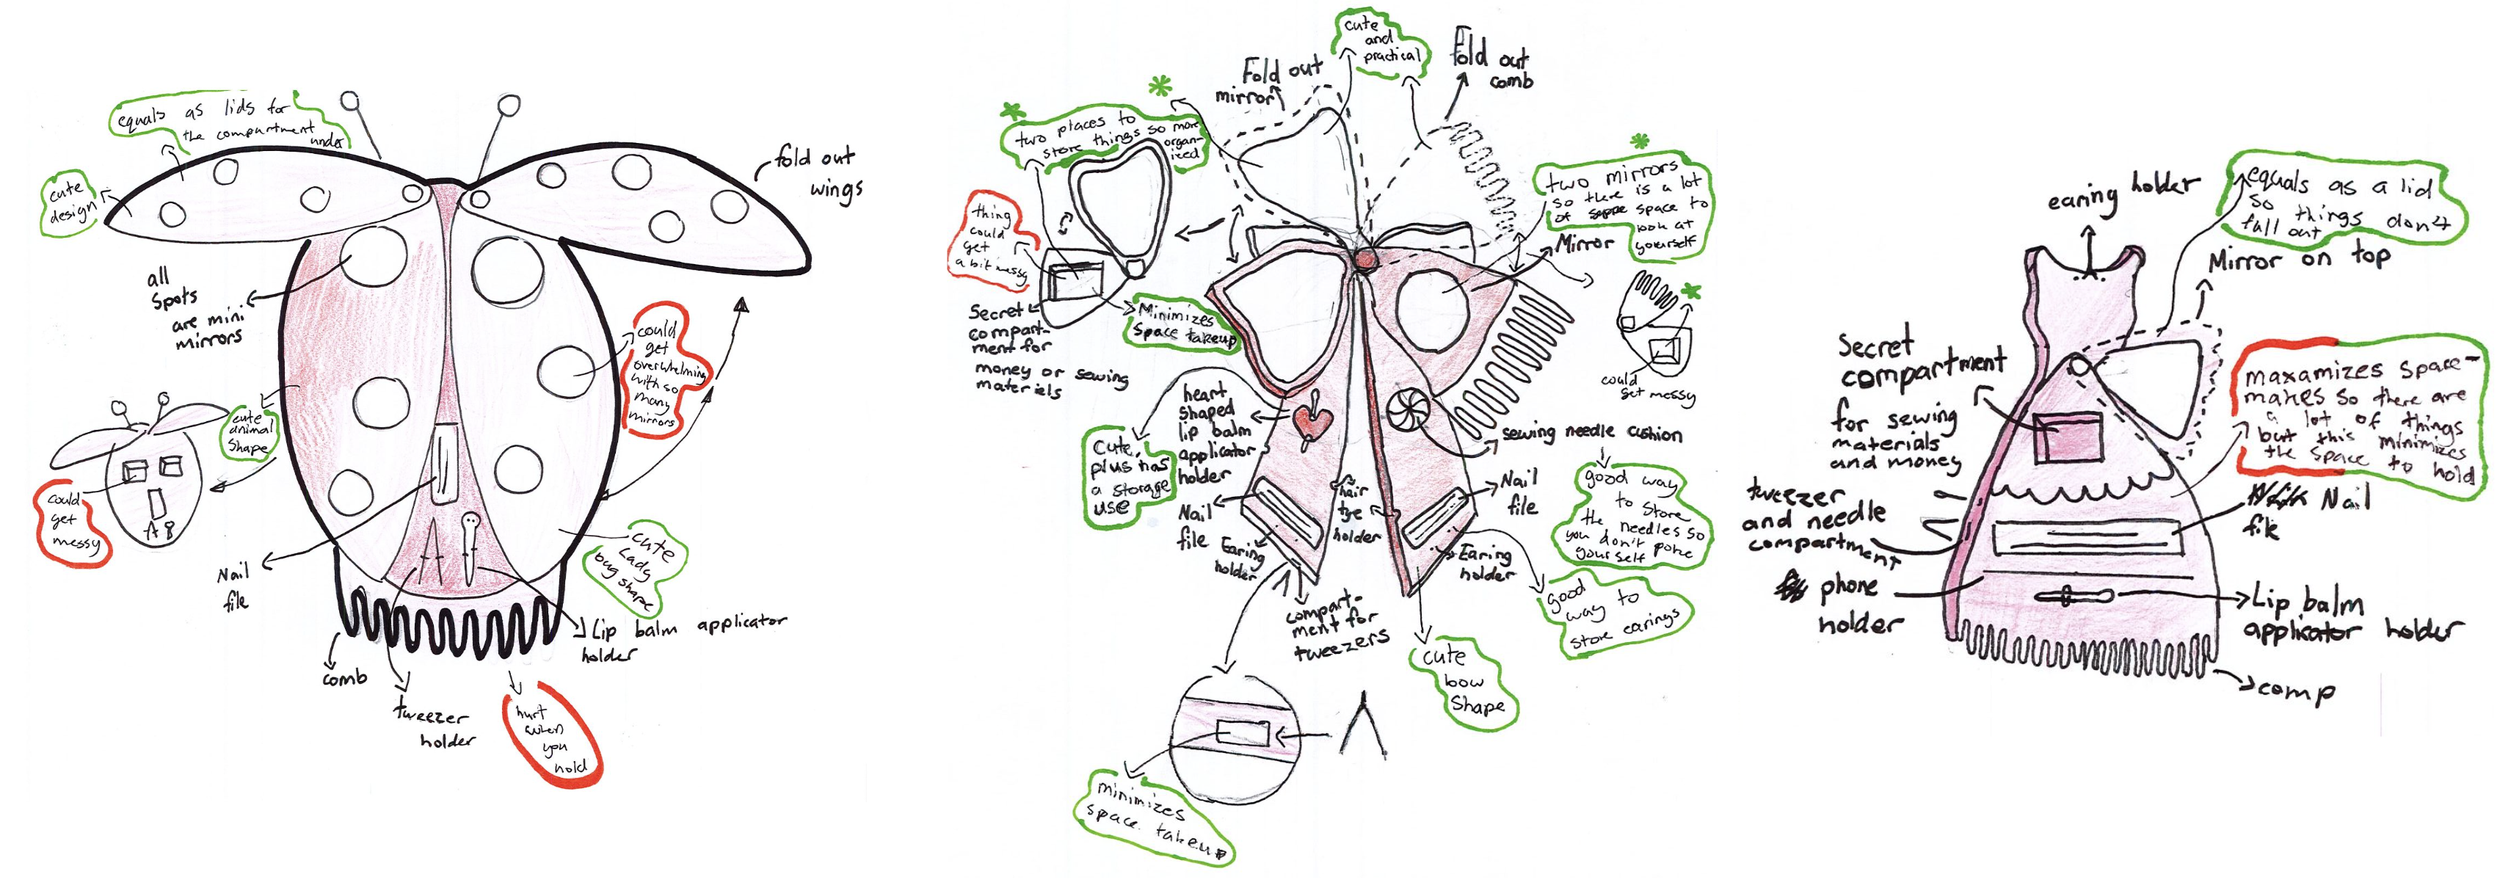 equals as lids for
the compartment
under
cute
design
fold out
wings
all
spots
are mini
mirrors
could
get
overwhelming
with so
many
mirrors
cute
animal
shape
could
get
messy
Nail
file
cute
lady
bug shape
comb
tweezer
holder
Lip balm applicator
holder
hurt
when
you
hold
cute
and
practical
Fold out
mirror
Fold out
comb
two places to
store things so more
organ-
ized
thing
could
get
a bit messy
Secret
compart-
ment for
money or sewing
materiels
Minimizes
Space takeup
two mirrors
so there is a lot
of space to
look at
yourself
Mirror
could
get messy
heart
shaped
lip balm
applicator
holder
Cute,
plus has
a storage
use
sewing needle cushion
good way
to store
the needles so
you don't poke
yourself
Nail
file
Earing
holder
hair
tye
holder
Nail
file
Earing
holder
good
way to
store earings
compart-
ment for
tweezers
cute
bow
Shape
minimizes
space takeup
earing holder
equals as a lid
so things don't
fall out
Mirror on top
Secret
compartment
for sewing
materials
and money
maxamizes space-
makes so there are
a lot of things
but this minimizes
the space to hold
tweezer
and needle
compartment
Nail
file
phone
holder
Lip balm
applicator holder
comp